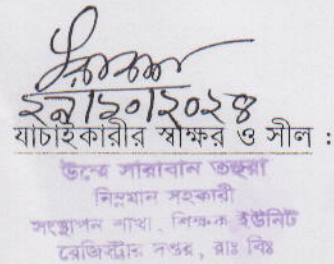 ২১/১০/২০২৪
যাচাইকারীর স্বাক্ষর ও সীল :
উম্মে সারাবান তহুরা
নিম্নমান সহকারী
সংস্থাপন শাখা, শিক্ষক ইউনিট
রেজিস্ট্রার দপ্তর, রাঃ বিঃ